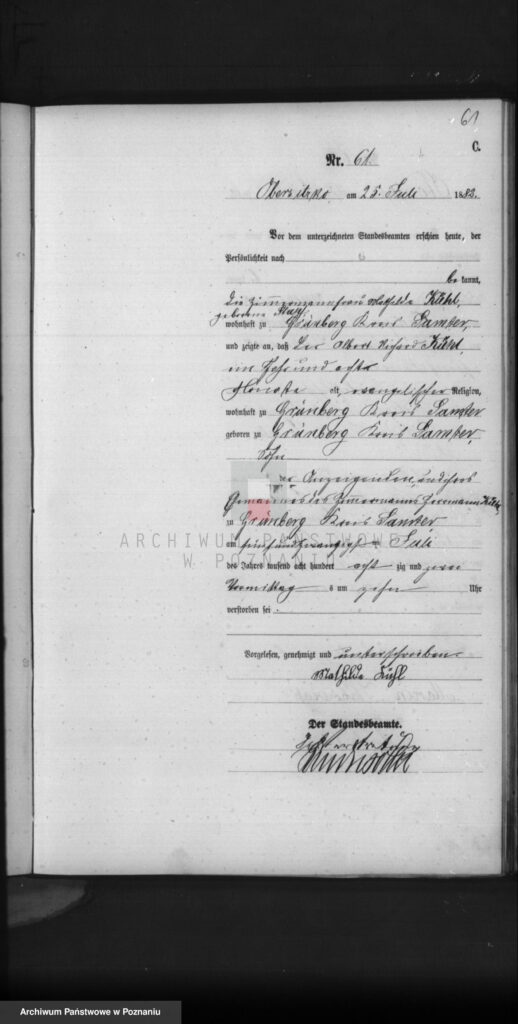 61
C.
Nr. 61.
Obersitzko, am 25. Juli 1882.
Vor dem unterzeichneten Standesbeamten erschien heute, der
Persönlichkeit nach
be kannt,
die Zimmermannfrau Mathilde Kühl,
geborene
wohnhaft zu Grünberg Kreis Samter,
und zeigte an, daß der Albert Richard Kühl,
ein Jahr und acht
Monate alt, evangelischer Religion,
wohnhaft zu Grünberg Kreis Samter
geboren zu Grünberg Kreis Samter,
Sohn
der Anzeigenden und ihres
Ehemannes des Zimmermanns Herrmann Kühl,
zu Grünberg Kreis Samter,
am fünfundzwanzigsten Juli
des Jahres tausend acht hundert acht zig und zwei
Vormittag s um zehn Uhr
verstorben sei.
Vorgelesen, genehmigt und unterschrieben
Mathilde Kühl
Der Standesbeamte.
In Vertretung
ARCHIWUM PAŃSTWOWE
W POZNANIU
Archiwum Państwowe w Poznaniu